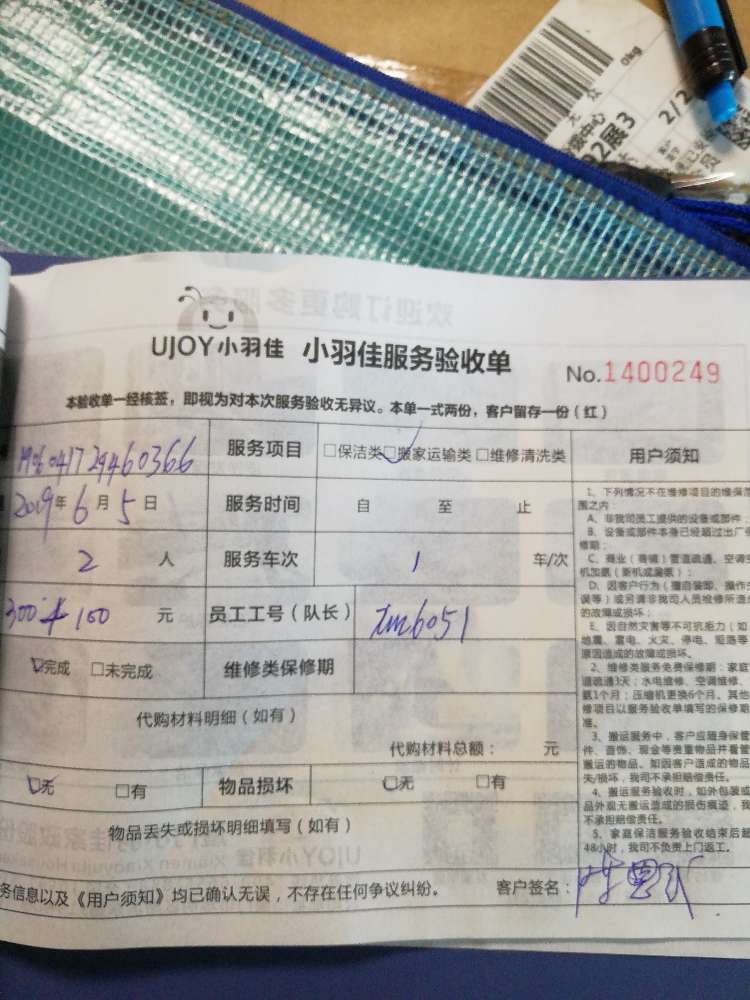 0kg
92展3
2/2
欢迎订购更多服务
UJOY小羽佳 小羽佳服务验收单
No.1400249
本验收单一经核签，即视为对本次服务验收无异议。本单一式两份，客户留存一份（红）
服务项目 □保洁类 □搬家运输类 □维修清洗类 用户须知
2019年6月5日 服务时间 自 至 止
2 人 服务车次 1 车/次
300+100 元 员工工号（队长） xm6051
□完成 □未完成 维修类保修期
代购材料明细（如有）
代购材料总额： 元
□无 □有 物品损坏 □无 □有
物品丢失或损坏明细填写（如有）
务信息以及《用户须知》均已确认无误，不存在任何争议纠纷。 客户签名：
1、下列情况不在维修项目的维保范
围之内：
A、非我司员工提供的设备或部件
B、设备或部件本身已经超过出厂
修期；
C、商业（商铺）管道疏通、空调空
机加氨（新机或漏氨）；
D、因客户行为（擅自装卸、操作失
误等）或另请非我司人员维修所造
的故障或损坏；
E、因自然灾害等不可抗拒力（如
地震、雷电、火灾、停电、短路等
原因造成的故障或损坏。
2、维修类服务免费保修期：家庭
道疏通3天；水电维修、空调维修、
氨1个月；压缩机更换6个月。其他
修项目以服务验收单填写的保修期
准。
3、搬运服务中，客户应随身保管
件、首饰、现金等贵重物品并看管
搬运的物品。如因客户造成的物品
失/损坏，我司不承担赔偿责任。
4、搬运服务验收时，如外包装或
品外观无搬运造成的损伤痕迹，我
不承担赔偿责任。
5、家庭保洁服务验收结束后超
48小时，我司不负责上门返工。